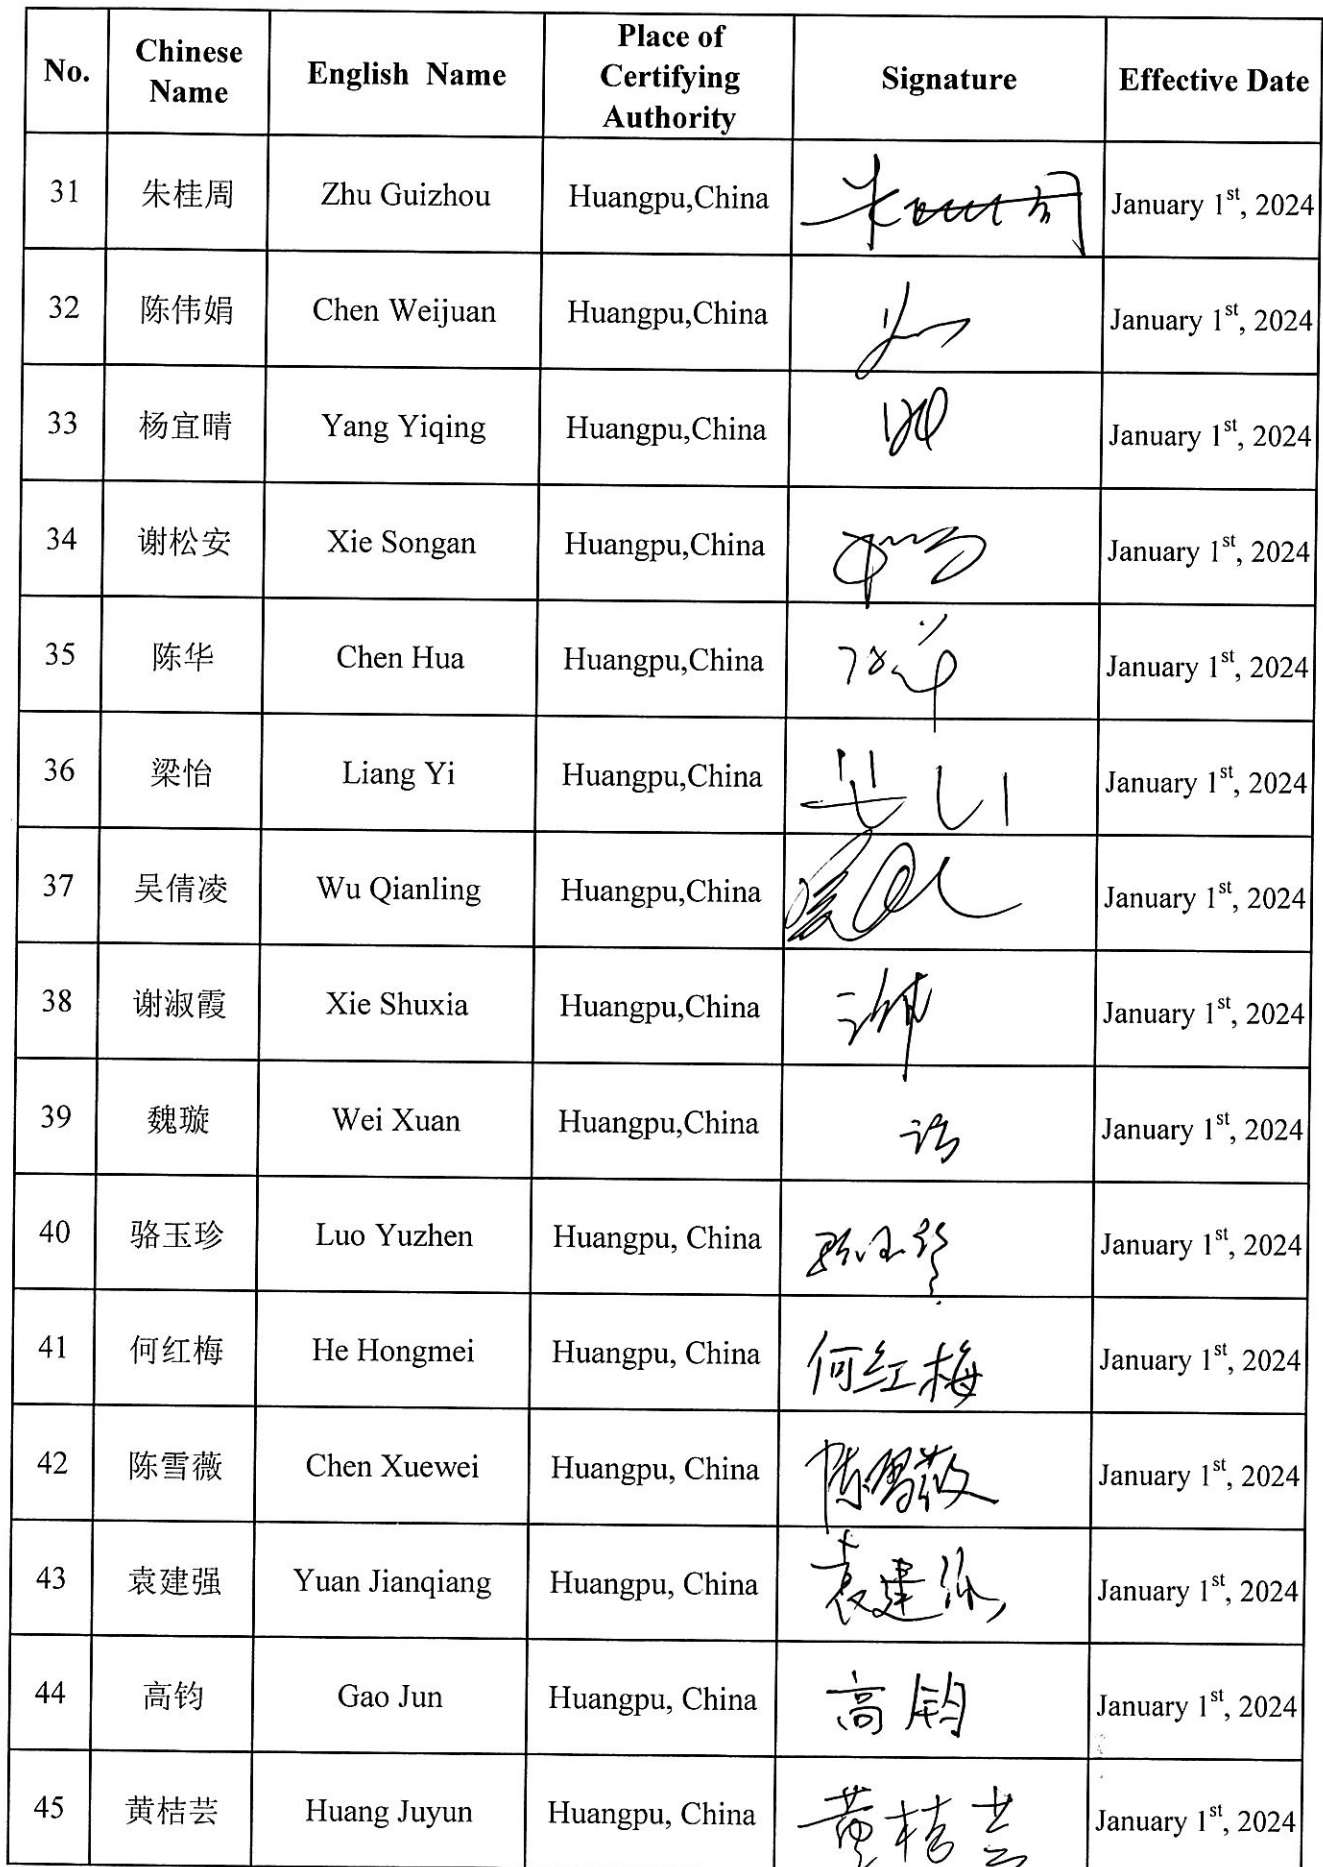 No. Chinese Name English Name Place of Certifying Authority Signature Effective Date
31 朱桂周 Zhu Guizhou Huangpu,China January 1st, 2024
32 陈伟娟 Chen Weijuan Huangpu,China January 1st, 2024
33 杨宜晴 Yang Yiqing Huangpu,China January 1st, 2024
34 谢松安 Xie Songan Huangpu,China January 1st, 2024
35 陈华 Chen Hua Huangpu,China January 1st, 2024
36 梁怡 Liang Yi Huangpu,China January 1st, 2024
37 吴倩凌 Wu Qianling Huangpu,China January 1st, 2024
38 谢淑霞 Xie Shuxia Huangpu,China January 1st, 2024
39 魏璇 Wei Xuan Huangpu,China January 1st, 2024
40 骆玉珍 Luo Yuzhen Huangpu, China 骆玉珍 January 1st, 2024
41 何红梅 He Hongmei Huangpu, China 何红梅 January 1st, 2024
42 陈雪薇 Chen Xuewei Huangpu, China 陈雪薇 January 1st, 2024
43 袁建强 Yuan Jianqiang Huangpu, China 袁建强 January 1st, 2024
44 高钧 Gao Jun Huangpu, China 高钧 January 1st, 2024
45 黄桔芸 Huang Juyun Huangpu, China 黄桔芸 January 1st, 2024